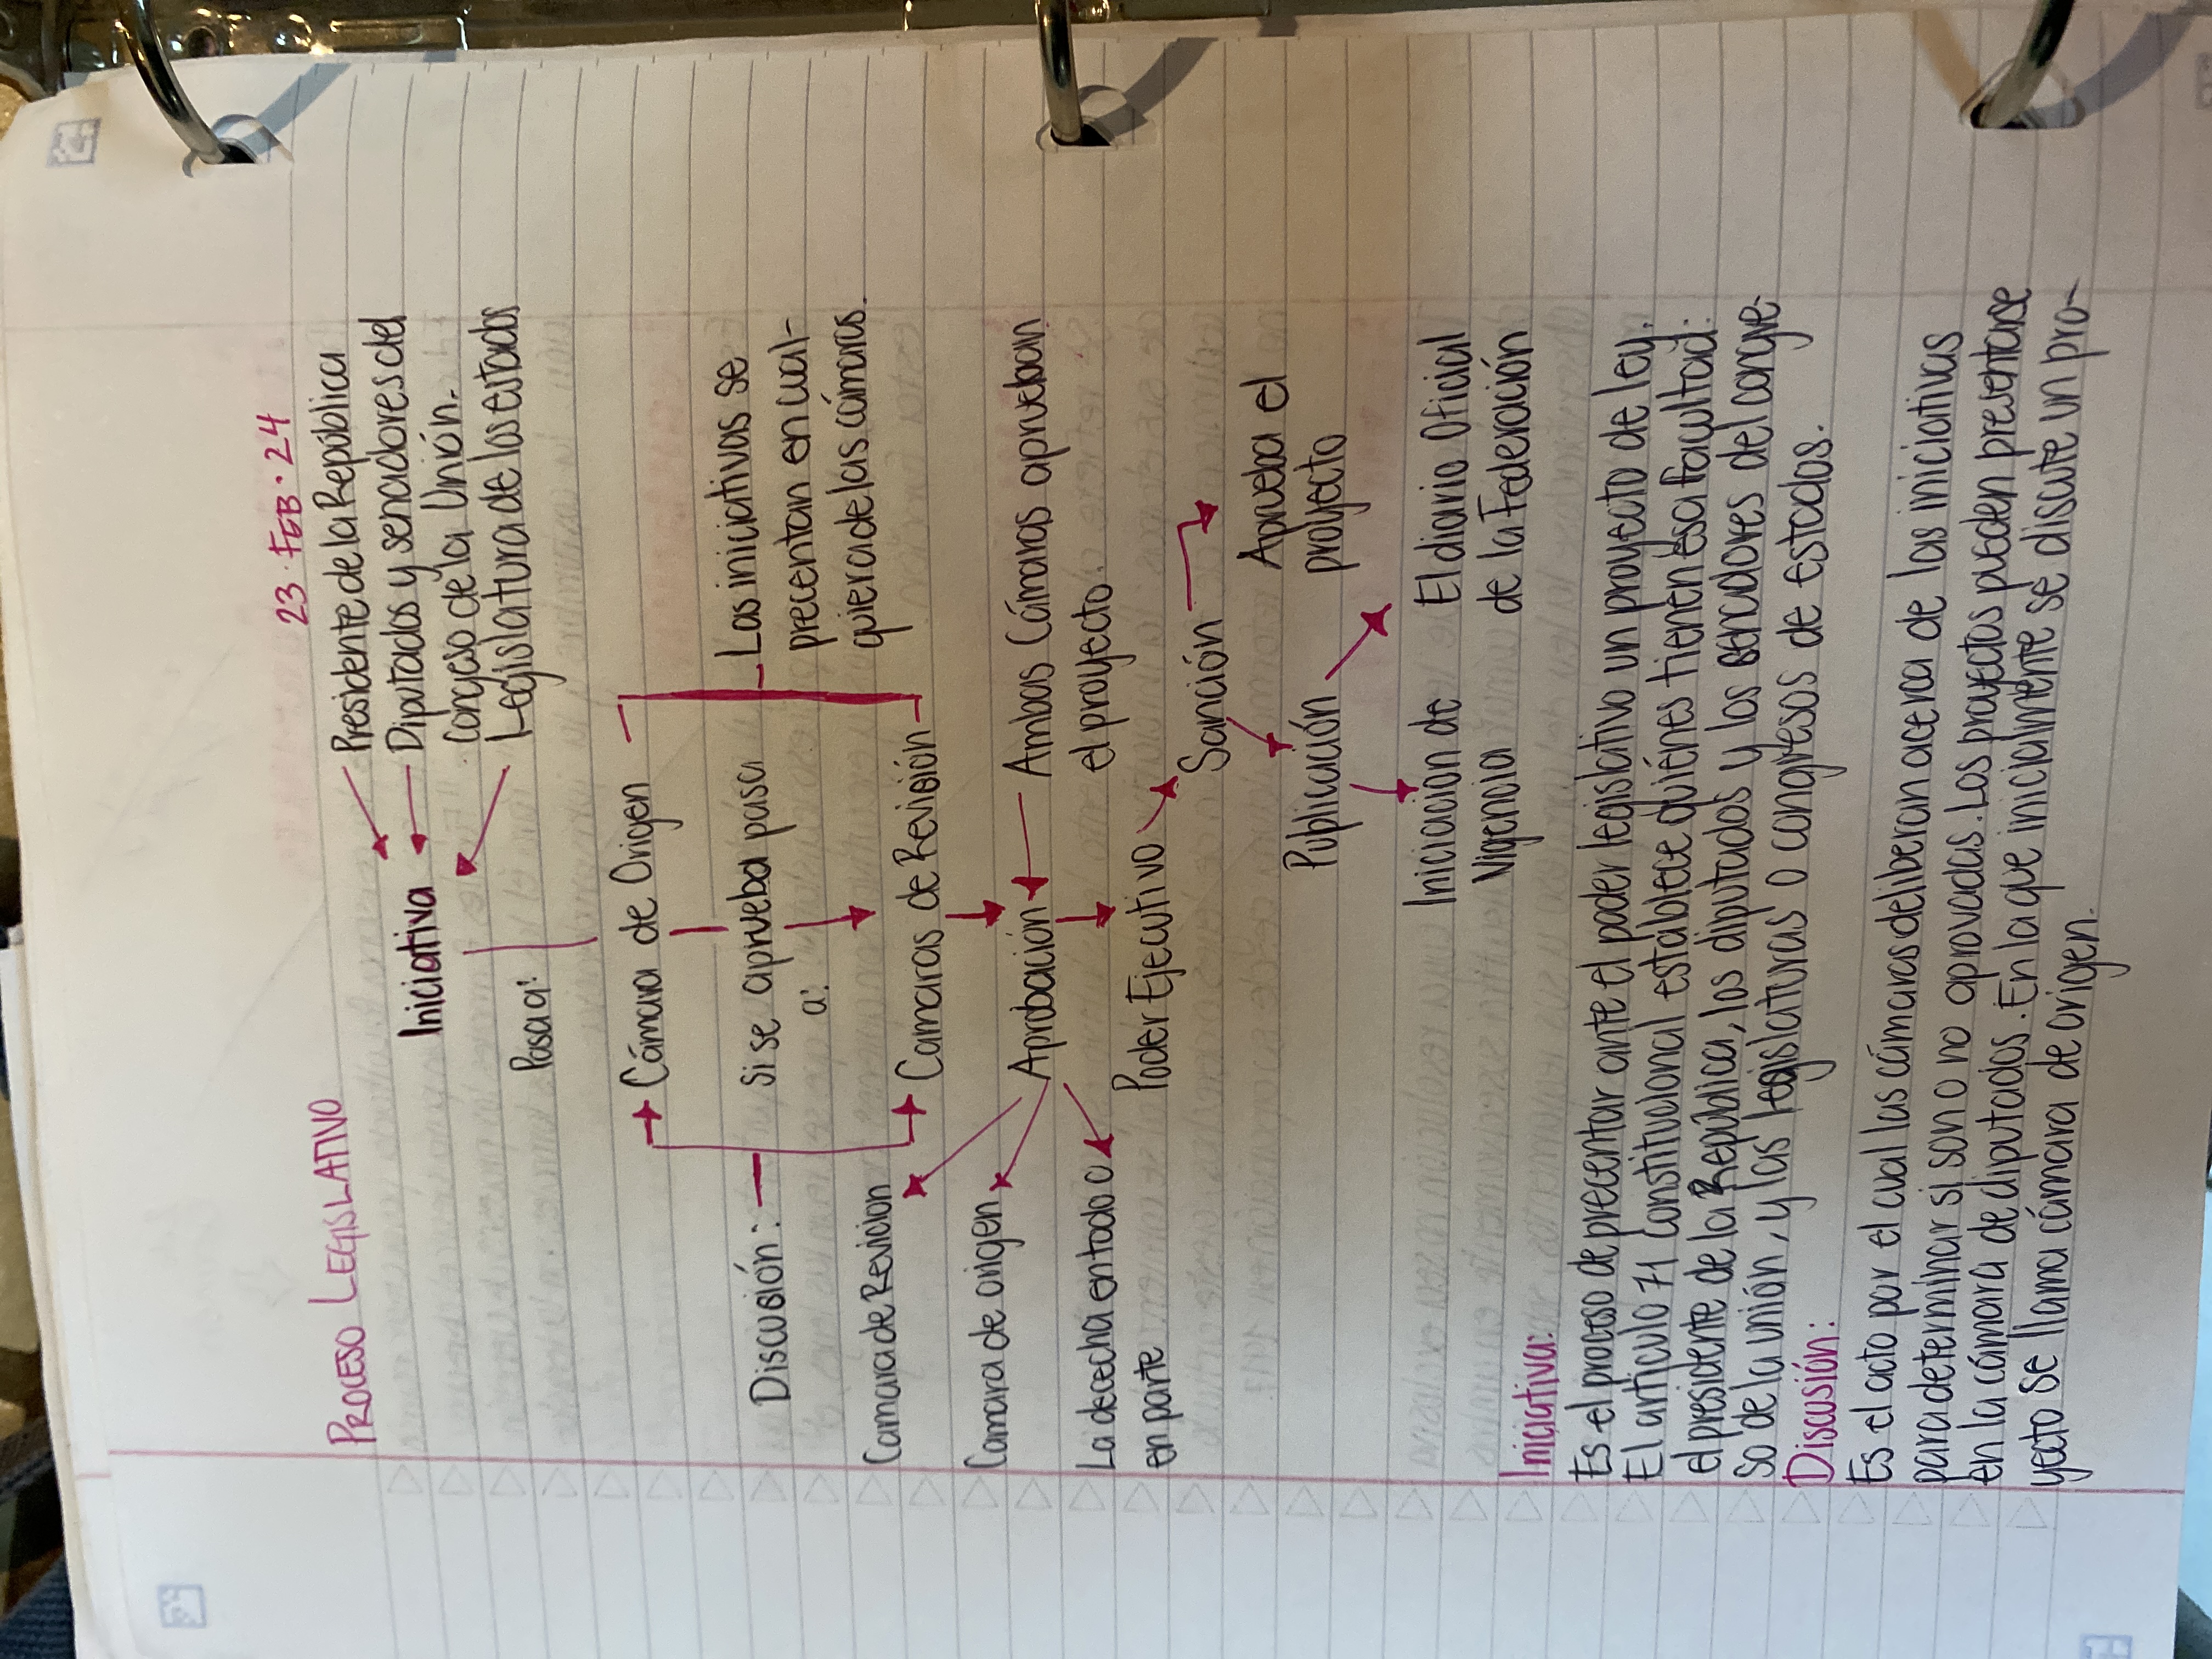 23·FEB·24
PROCESO LEGISLATIVO
Presidente de la República
Diputados y senadores del
congreso de la Unión.
Legislatura de los estados
Iniciativa
Pasa a:
Cámara de Origen
Las iniciativas se
precentan en cual-
quiera de las cámaras.
Si se aprueba pasa
a:
Discusión:
Camaras de Revisión
Camara de Revicion
Ambas Cámaras aprueban
el proyecto.
Aprobación
Camara de origen
La dececha en todo o
en parte
Poder Ejecutivo
Sanción
Aprueba el
proyecto
Publicación
Iniciacion de
Vigencia
El diario Oficial
de la Federación
Iniciativa:
Es el proceso de precentar ante el poder legislativo un proyecto de ley.
El articulo 71 Constitucional establece quiénes tienen esa facultad:
el presidente de la República, los diputados y los senadores del congre-
so de la unión, y las legislaturas o congresos de estados.
Discusión:
Es el acto por el cual las cámaras deliberan acerca de las iniciativas
para determinar si son o no aprovadas. Los proyectos pueden presentarse
en la cámara de diputados. En la que inicialmente se discute un pro-
yecto se llama cámara de origen.